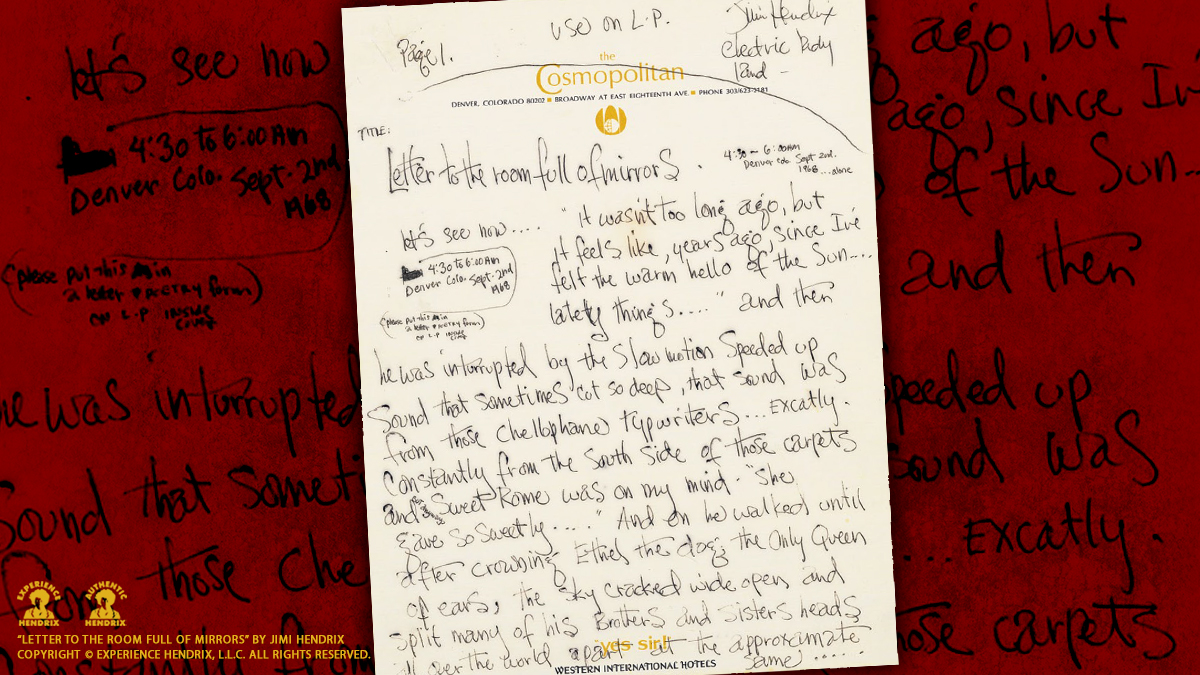 Page 1.
use on L.P.
Jimi Hendrix
electric lady
land -
the
Cosmopolitan
DENVER, COLORADO 80202 ■ BROADWAY AT EAST EIGHTEENTH AVE. ■ PHONE 303/623-2181
TITLE:
Letter to the room full of mirrors.
4:30 - 6:00AM
Denver Colo. Sept. 2nd.
1968 ...alone
let's see now....
4:30 to 6:00 AM
Denver Colo. Sept. 2nd
1968
(please put this in
a letter & poetry form)
on L.P inside
cover
"It wasn't too long ago, but
it feels like, years ago, since I've
felt the warm hello of the Sun...
lately things...." and then
he was interrupted by the slow motion Speeded up
Sound that sometimes cut so deep, that sound was
from those Chellophane typwriters... Excatly.
Constantly from the South side of those carpets
and Sweet Rome was on my mind. "She
gave so sweetly...." And on he walked until
after crowning Ethel the dog, the Only Queen
of ears, the Sky cracked wide open and
split many of his Brothers and sisters heads
all over the world apart at the approxamate
same......
yes sir!!
WESTERN INTERNATIONAL HOTELS
let's see now
4:30 to 6:00 AM
Denver Colo. Sept. 2nd
1968
(please put this in
a letter & poetry form)
on L.P inside
cover
he was interrupted
Sound that somet
from those Che
ago, but
ago, since I've
of the Sun...
and then
peeded up
ound was
... Excatly.
hose carpets
EXPERIENCE
HENDRIX
AUTHENTIC
HENDRIX
"LETTER TO THE ROOM FULL OF MIRRORS" BY JIMI HENDRIX
COPYRIGHT © EXPERIENCE HENDRIX, L.L.C. ALL RIGHTS RESERVED.